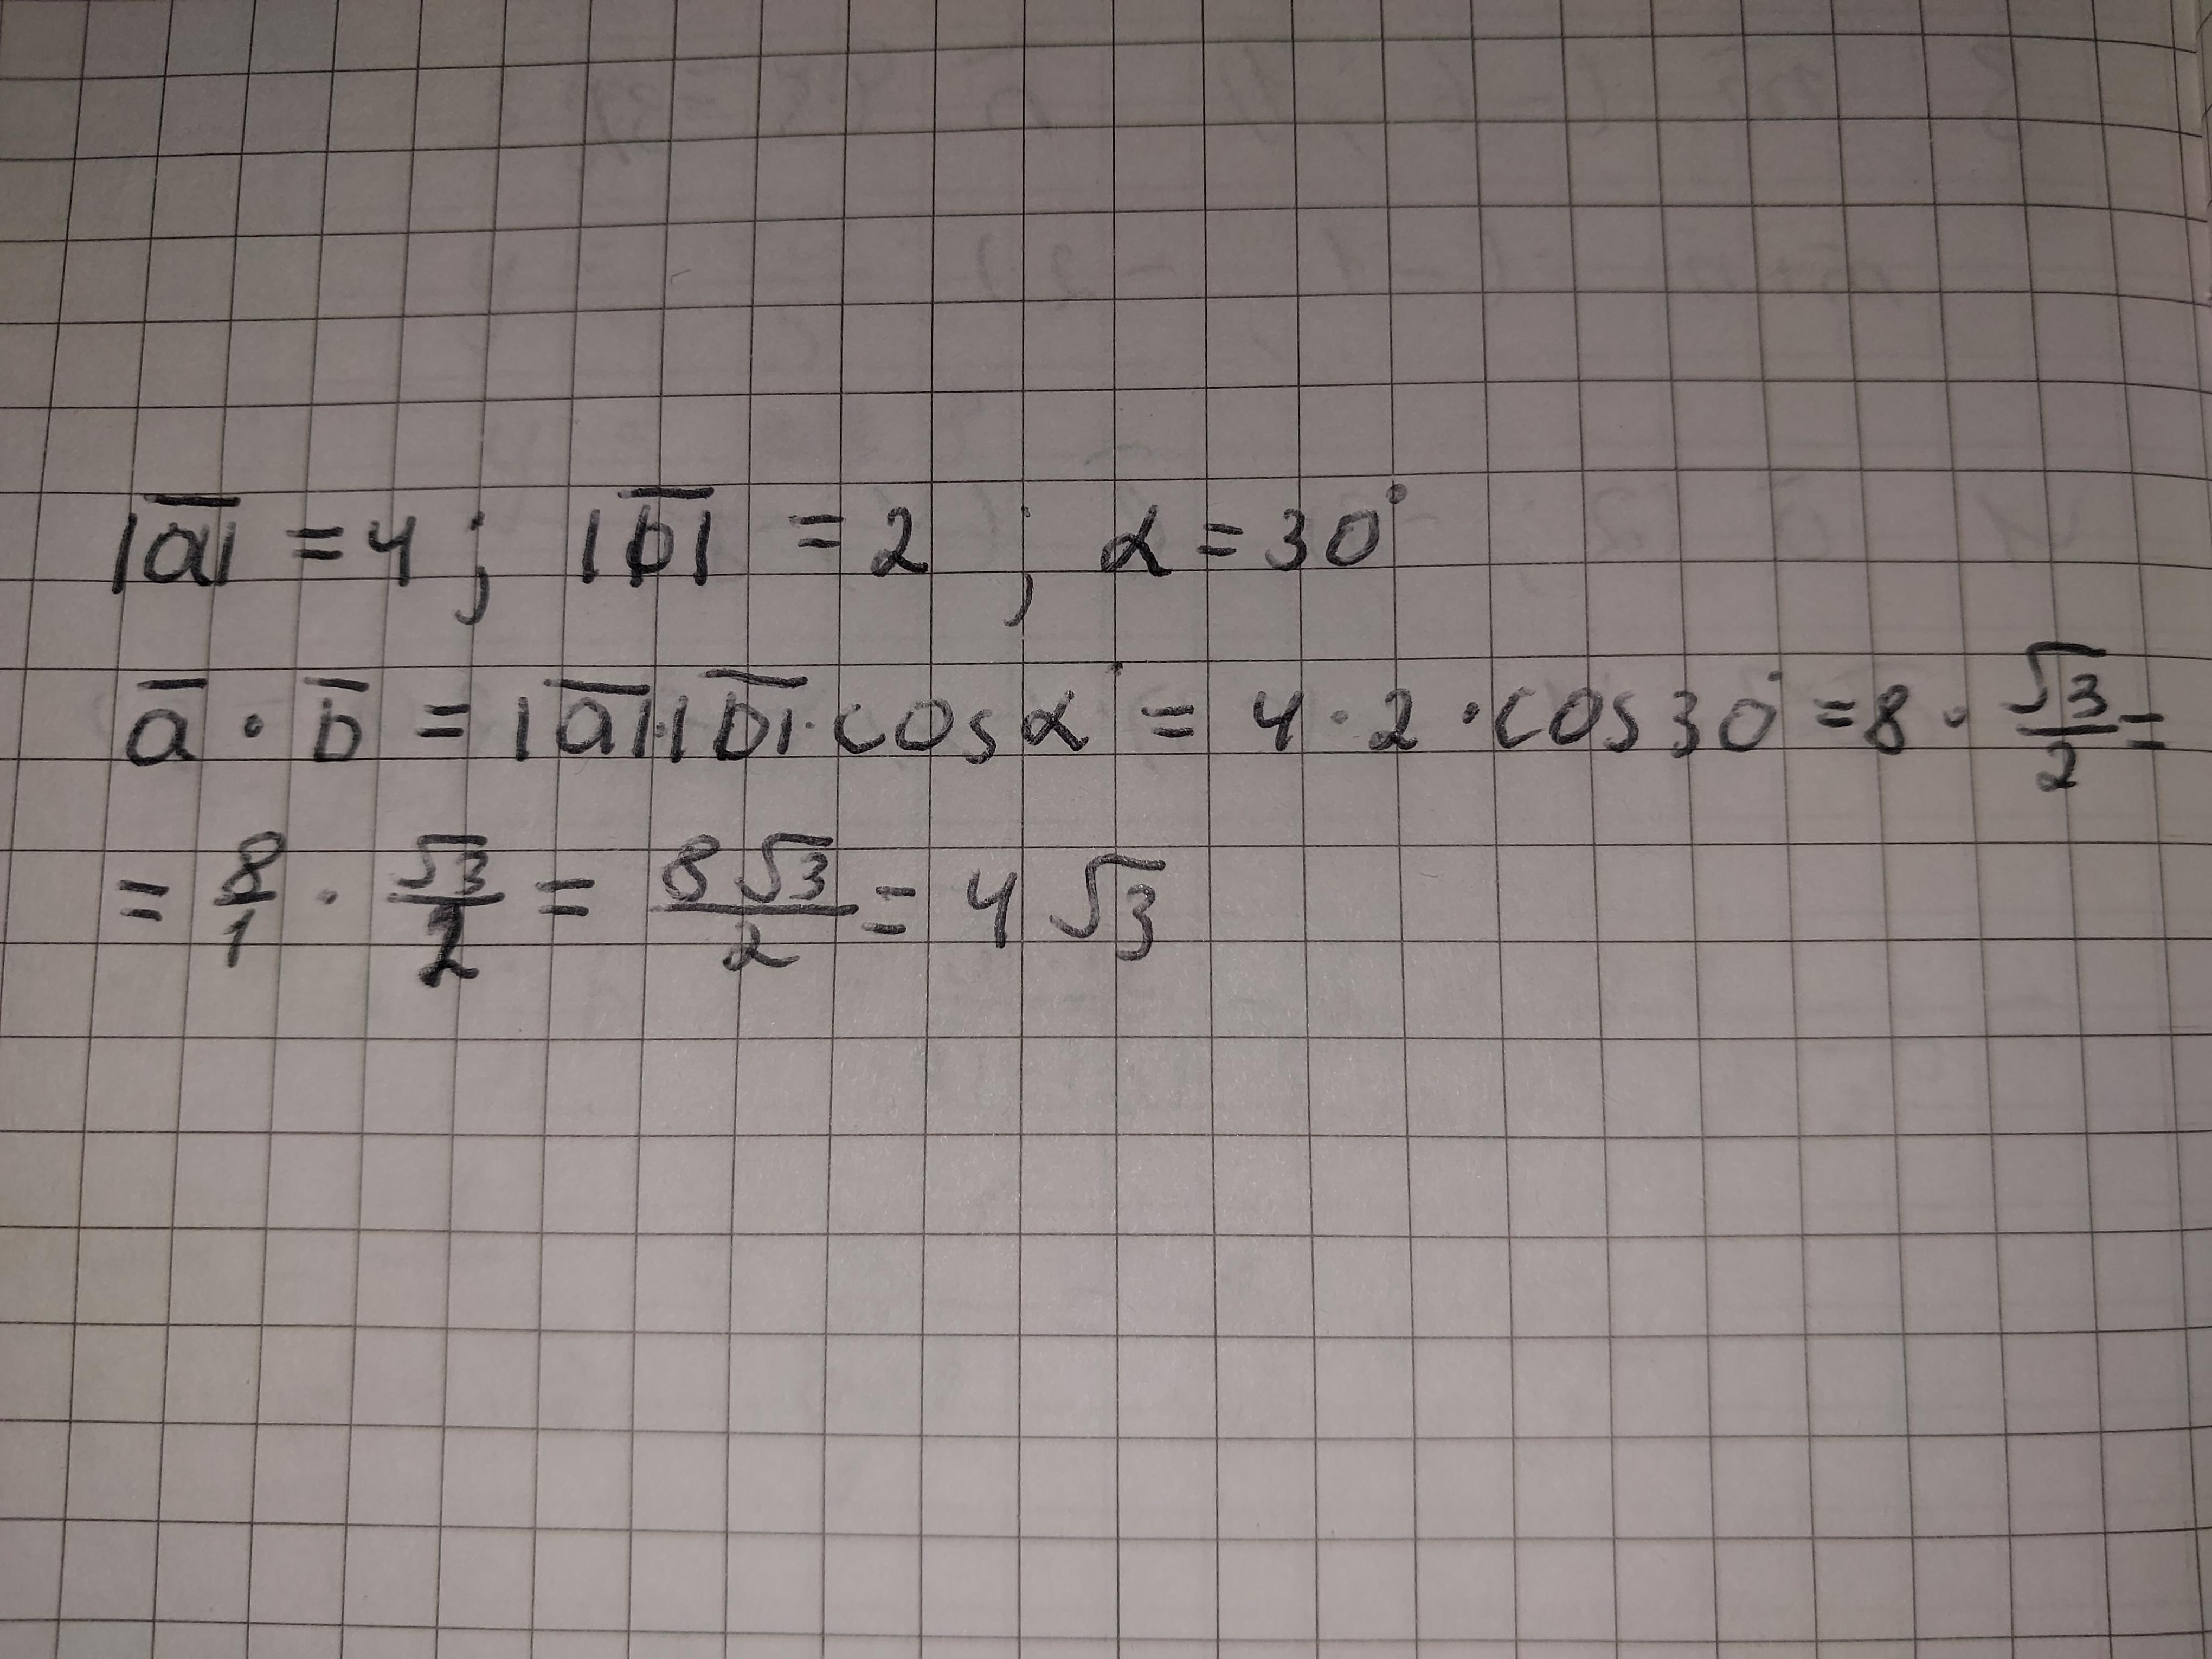 |a̅| = 4 ; |b̅| = 2 ; α = 30°
a̅ · b̅ = |a̅|·|b̅|· cos α° = 4 · 2 · cos 30° = 8 · √3/2 =
= 8/1 · √3/2 = 8√3/2 = 4√3